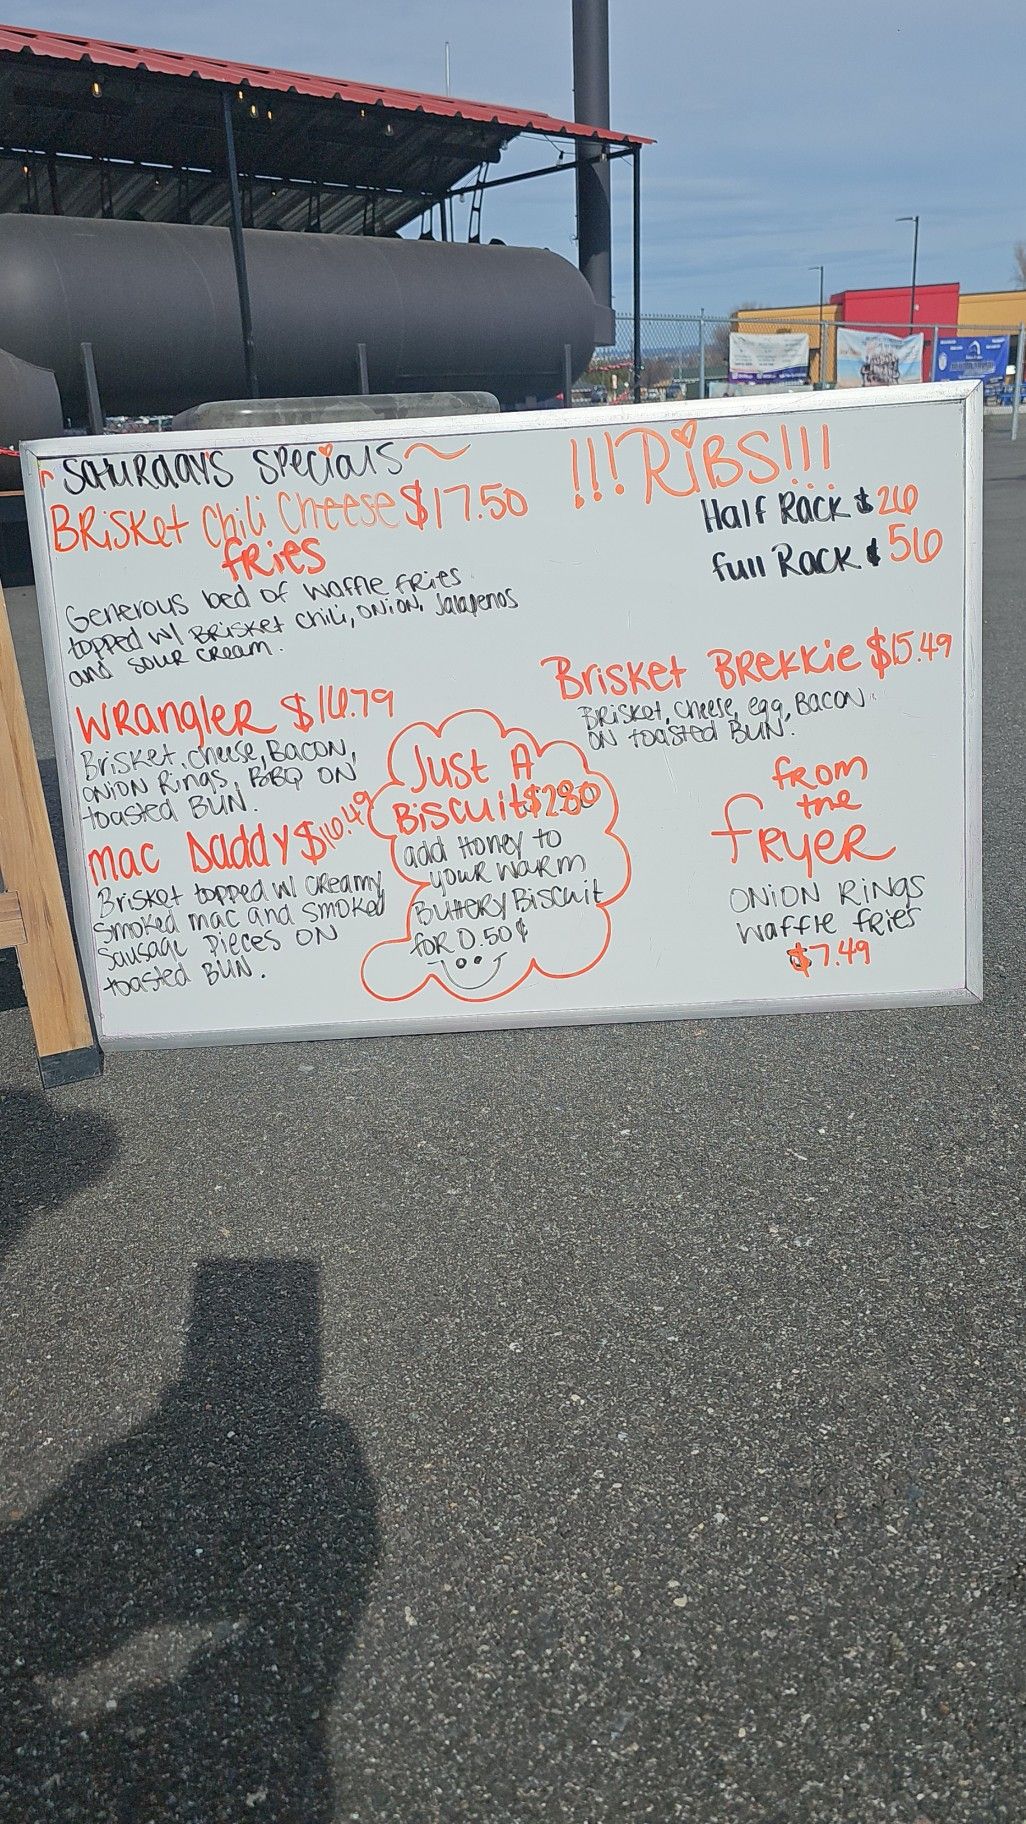 ~ Saturday's Specials ~
Brisket Chili Cheese $17.50
fries
Generous bed of waffle fries
topped w/ Brisket chili, onion, Jalapenos
and sour cream.
Wrangler $16.79
Brisket, cheese, Bacon,
onion rings, BBQ on
toasted Bun.
Mac Daddy $16.49
Brisket topped w/ creamy
smoked mac and smoked
sausage pieces on
toasted Bun.
Just A
Biscuit $2.80
add Honey to
your warm
Buttery Biscuit
for 0.50¢
!!!RiBS!!!
Half Rack $26
full Rack $56
Brisket Brekkie $15.49
Brisket, cheese, egg, Bacon
on toasted Bun.
from
the
fryer
Onion Rings
waffle fries
$7.49